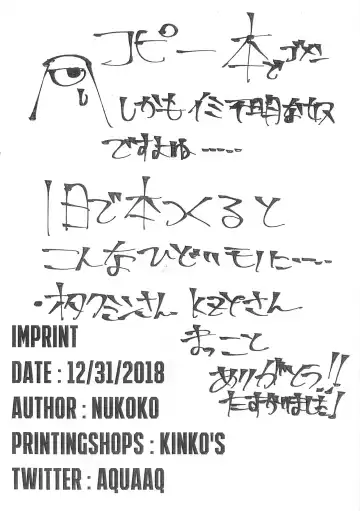 コピー本でゴメン
しかもイミ不明な奴
ですまぬ……
1日で本つくると
こんなひどいモノに……
・ネタクミンさん KZYさん
まっこと
ありがとう!!
たすかりました!
IMPRINT
DATE : 12/31/2018
AUTHOR : NUKOKO
PRINTINGSHOPS : KINKO'S
TWITTER : AQUAAQ